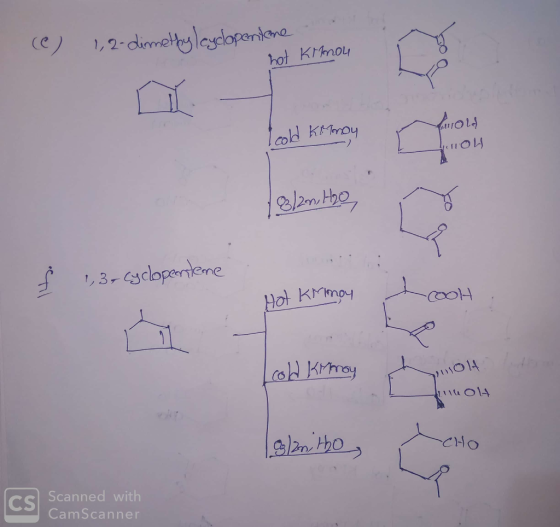 (e) 1,2-dimethylcyclopentene
hot KMnO4
O
O
cold KMnO4
OH
OH
O3/Zn, H2O
O
O
f 1,3-cyclopentene
Hot KMnO4
COOH
O
cold KMnO4
OH
OH
O3/Zn, H2O
CHO
O
CS Scanned with
CamScanner